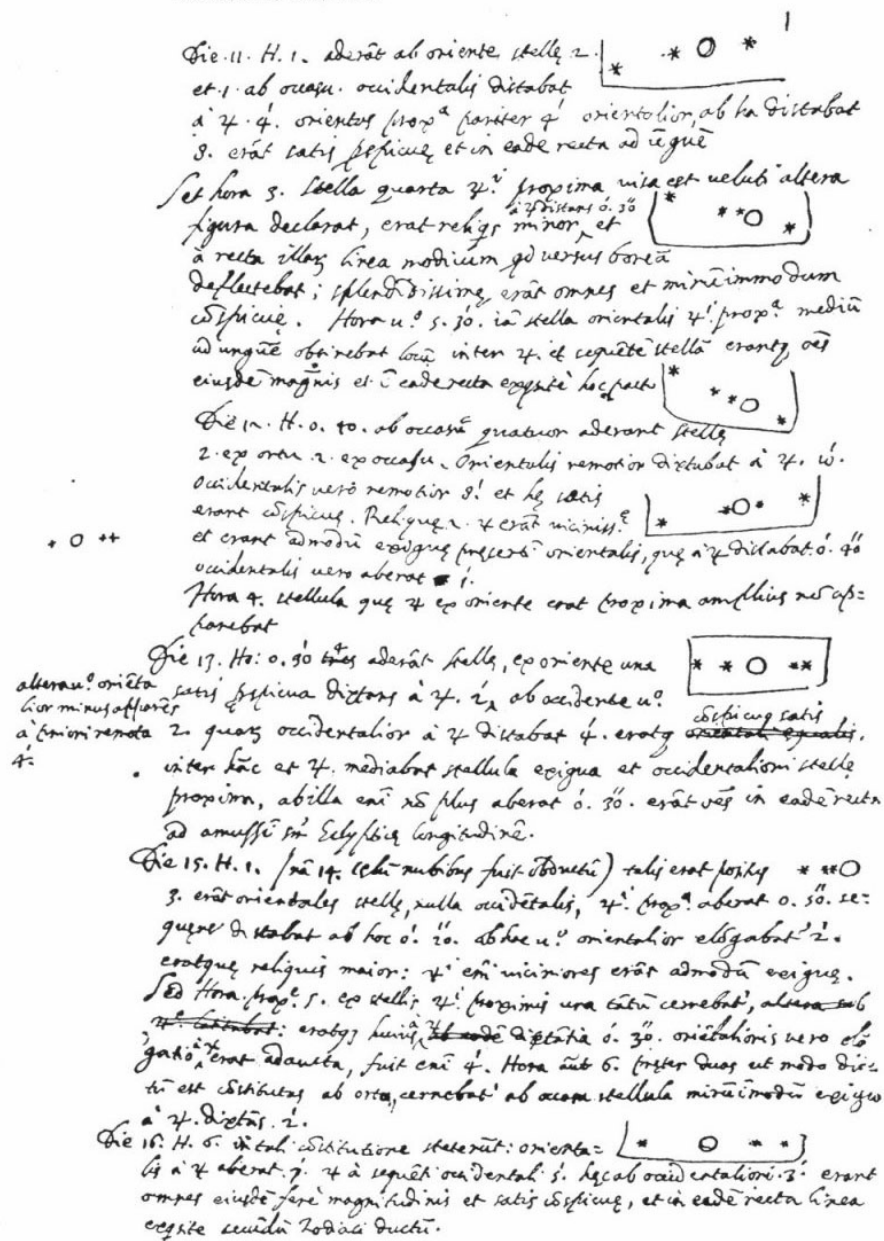 1
Die. 11. H. 1. aderāt ab oriente stellę 2.
et. 1. ab occasu. occidentalis distabat
à ♃. 4'. orientus proxᵃ pariter 4' orientalior, ab hac distabat
8. erāt satis pspicuę et in eadē recta ad ūguē
Sed hora 3. stella quarta ♃.ⁱ proxima uisa est ueluti altera
figura declarat, erat reliqs minor, à ♃ distans 0'. 30'' et
à recta illaꝝ linea modicum qd versus boreā
deflectebat; splendidissimę erāt omnes et mirūimmodum
cōspicuę. Hora u.º 5. 30'. iā stella orientalis ♃.ⁱ proxᵃ mediū
ad unguē obtinebat locū inter ♃. et sequētē stellā erantq oēs
eiusdē magnis et ī eadē recta exqsitè hoc pacto
Die 12. H. 0. 40. ab occasu quatuor aderant stellę
2. ex ortu. 2. ex occasu. Orientalis remotior distabat à ♃. 10'.
Occidentalis verò remotior 8'. et hę satis
erant cōspicuę. Reliquę 2. ♃ erāt uiciniss.ᵉ
et erant admodū exiguę presertī orientalis, quę à ♃ distabat. 0'. 40''
occidentalis uero aberat 1'.
Hora 4. stellula quę ♃ ex oriente erat proxima amplius nō ap=
parebat
Die 13. Ho: 0. 30 tres aderāt stellę, ex oriente una
satis pspicua distans à ♃. 2', ab occidente u.º
altera u.º oriēta
lior minus apparēs
à priori remota
4'.
2. quaꝝ occidentalior à ♃ distabat 4'. eratq orientali equalis. cōspicuę satis
inter hāc et ♃. mediabat stellula exigua et occidentaliori stellę
proxima, ab illa enī nō plus aberat 0'. 30''. erāt oēs in eadē recta
ad amussī sm̄ Eclypticę longitudinē.
Die 15. H. 1. (nā 14. celū nubibus fuit obductū) talis erat positus
3. erāt orientales stellę, nulla occidētalis, ♃.ⁱ proxᵃ aberat 0. 50''. se-
quens distabat ab hac 0'. 20''. ab hac u.º orientalior elōgabat 2'.
eratquę reliquis maior: ♃.ⁱ enī uiciniores erāt admodū exiguę.
Sed Hora proxᵉ 5. ex stellis ♃.ⁱ proximis una tātū cernebat', altera sub
♃.ᵉ latitabat: eratqꝫ huius à ♃ ab eadē distātia 0'. 30''. orientalioris uero elō
gatio à ♃ erat adaucta, fuit enī 4'. Hora aūt 6. preter duas ut modo dic=
tū est cōstitutas ab ortu, cernebat' ab occasu stellula mirūimodū exigua
à ♃. distās. 2'.
Die 16. H. 6. in tali cōstitutione steterūt: orienta=
lis à ♃ aberat. 7'. ♃ à sequēti occidentali 5'. hęc ab occidentaliori. 3'. erant
omnes eiusdē ferè magnitudinis et satis cōspicuę, et in eadē recta linea
exqsite secūdū Zodiaci ductū.